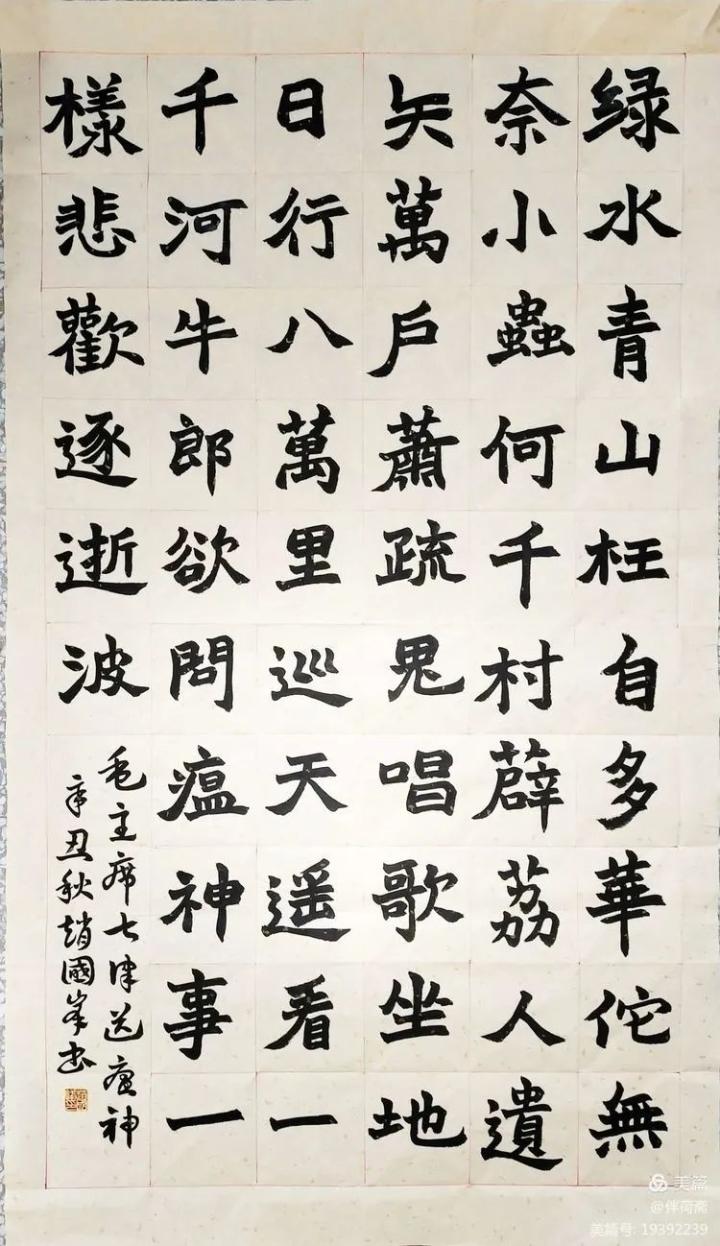 绿水青山枉自多華佗無
奈小蟲何千村薜荔人遺
矢萬戶蕭疏鬼唱歌坐地
日行八萬里巡天遥看一
千河牛郎欲問瘟神事一
樣悲歡逐逝波
毛主席七律送瘟神
辛丑秋趙國峯书
美篇
@伴荷斋
美篇号: 19392239